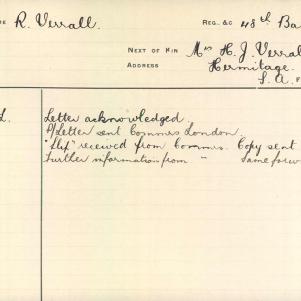 R. Verrall.
REG. &C 48th Ba
NEXT OF KIN Mrs H. J. Verral
ADDRESS Hermitage.
S. A.
L.
Letter acknowledged.
D/Letter sent Commrs London.
"Slip" received from Commrs. Copy sent
Further information from " same forw